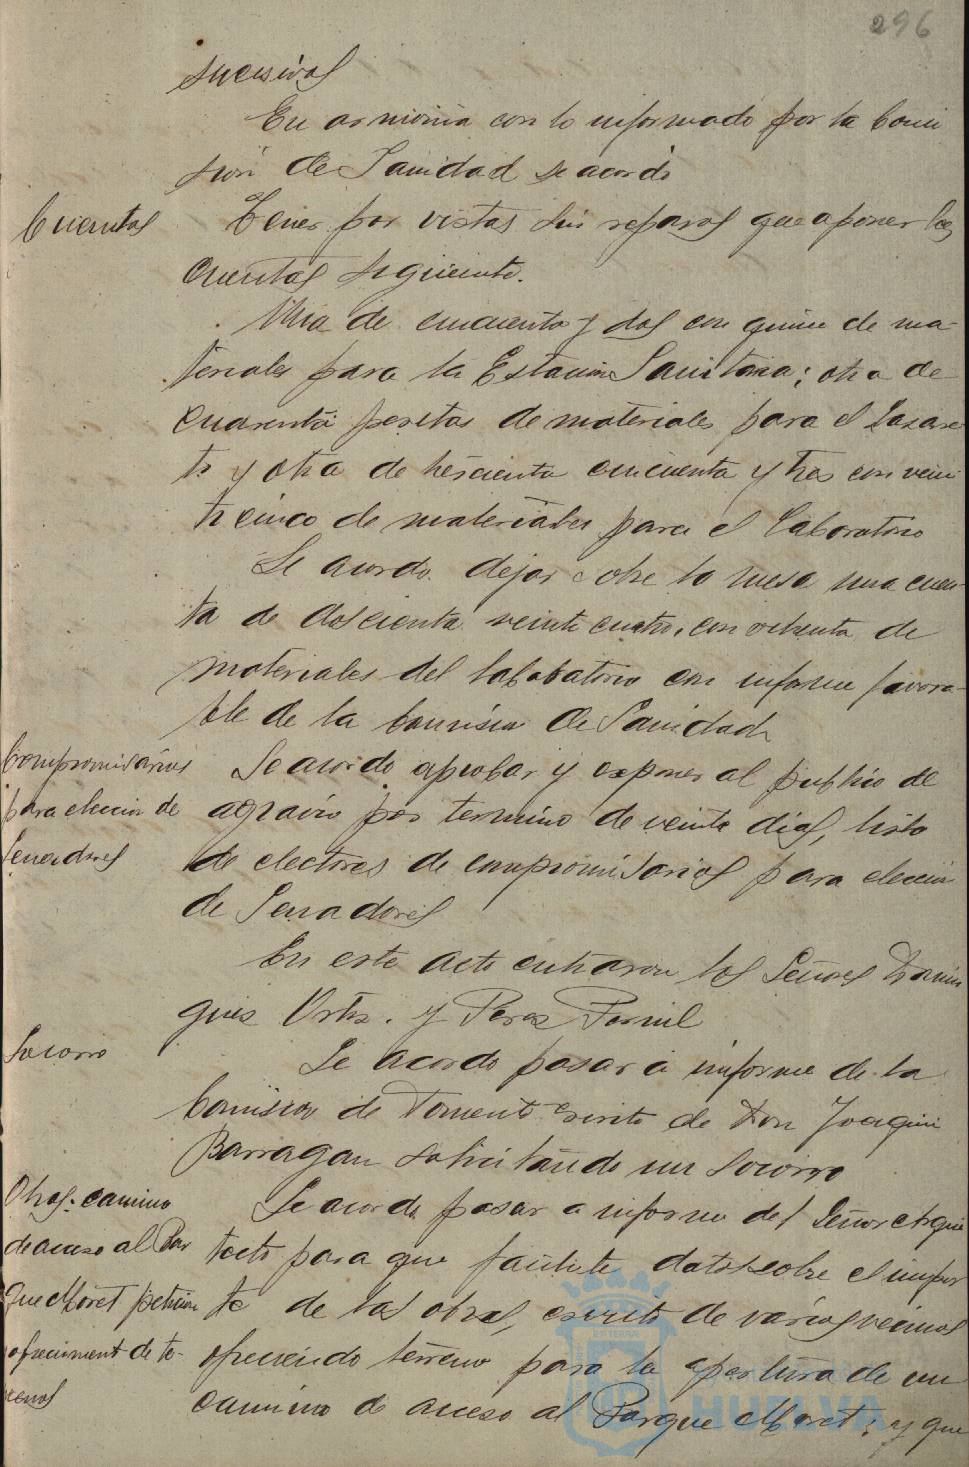 296
sucesivas
En armonia con lo informado por la Comi
sion de Sanidad se acordó
Cuentas
Tener por vistas sin reparos que oponer las
cuentas siguiente.
Una de cincuenta y dos con quince de ma-
teriales para la Estacion Sanitaria; otra de
cuarenta pesetas de materiales para el Lazare
to y otra de trescienta cincuenta y tres con vein
ticinco de materiales para el Laboratorio
Se acordo dejar sobre la mesa una cuen
ta de doscienta veinte cuatro, con ochenta de
materiales del laboratorio con informe favora-
ble de la Comision de Sanidad
Compromisarios
para eleccion de
Senadores
Se acordo aprobar y exponer al publico de
agravio por termino de veinte dias, lista
de electores de compromisarios para eleccion
de Senadores
En este acto entraron los Señores Domin
gues Ortiz. y Perez Pernil
Socorro
Se acordo pasar á informe de la
Comision de Fomento escrito de Don Joaquin
Barragan solicitando un socorro
Obras. camino
de acceso al Par
que Moret peticion
ofreciment de te-
renos
Se acordo pasar a informe del Señor Arqui
tecto para que facilite datos sobre el impor
te de las obras, escrito de varios vecinos
ofreciendo terreno para la apertura de un
camino de acceso al Parque Moret; y que
HUELVA